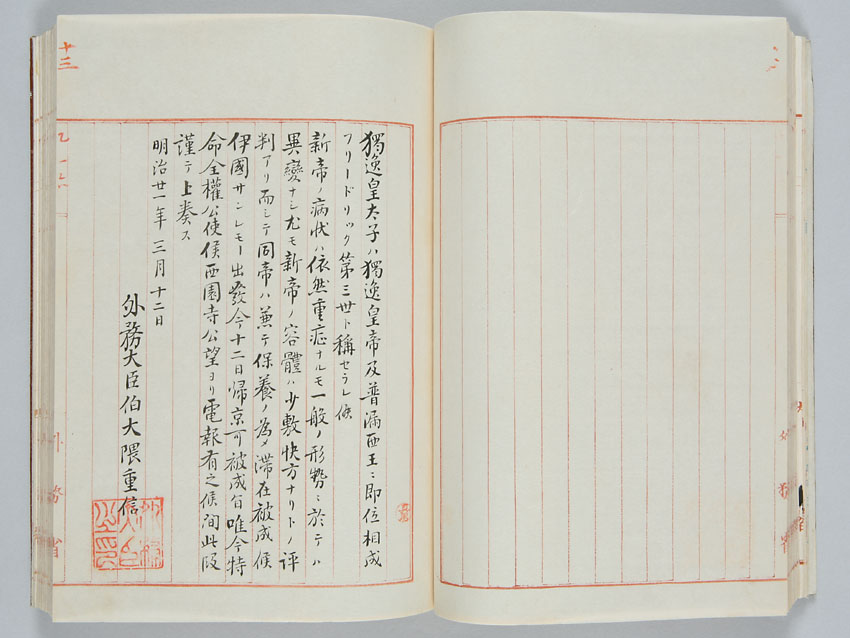 獨逸皇太子ハ獨逸皇帝及普漏西王ニ即位相成
フリードリック第三世ト稱セラレ候
新帝ノ病状ハ依然重症ナルモ一般ノ形勢ニ於テハ
異變ナシ尤モ新帝ノ容體ハ少敷快方ナリトノ評
判アリ而シテ同帝ハ兼テ保養ノ為メ滞在被成候
伊國サンレモー出發今十二日帰京可被成旨唯今特
命全權公使侯西園寺公望ヨリ電報有之候間此段
謹テ上奏ス
明治廿一年三月十二日
外務大臣伯大隈重信
十三
外務省